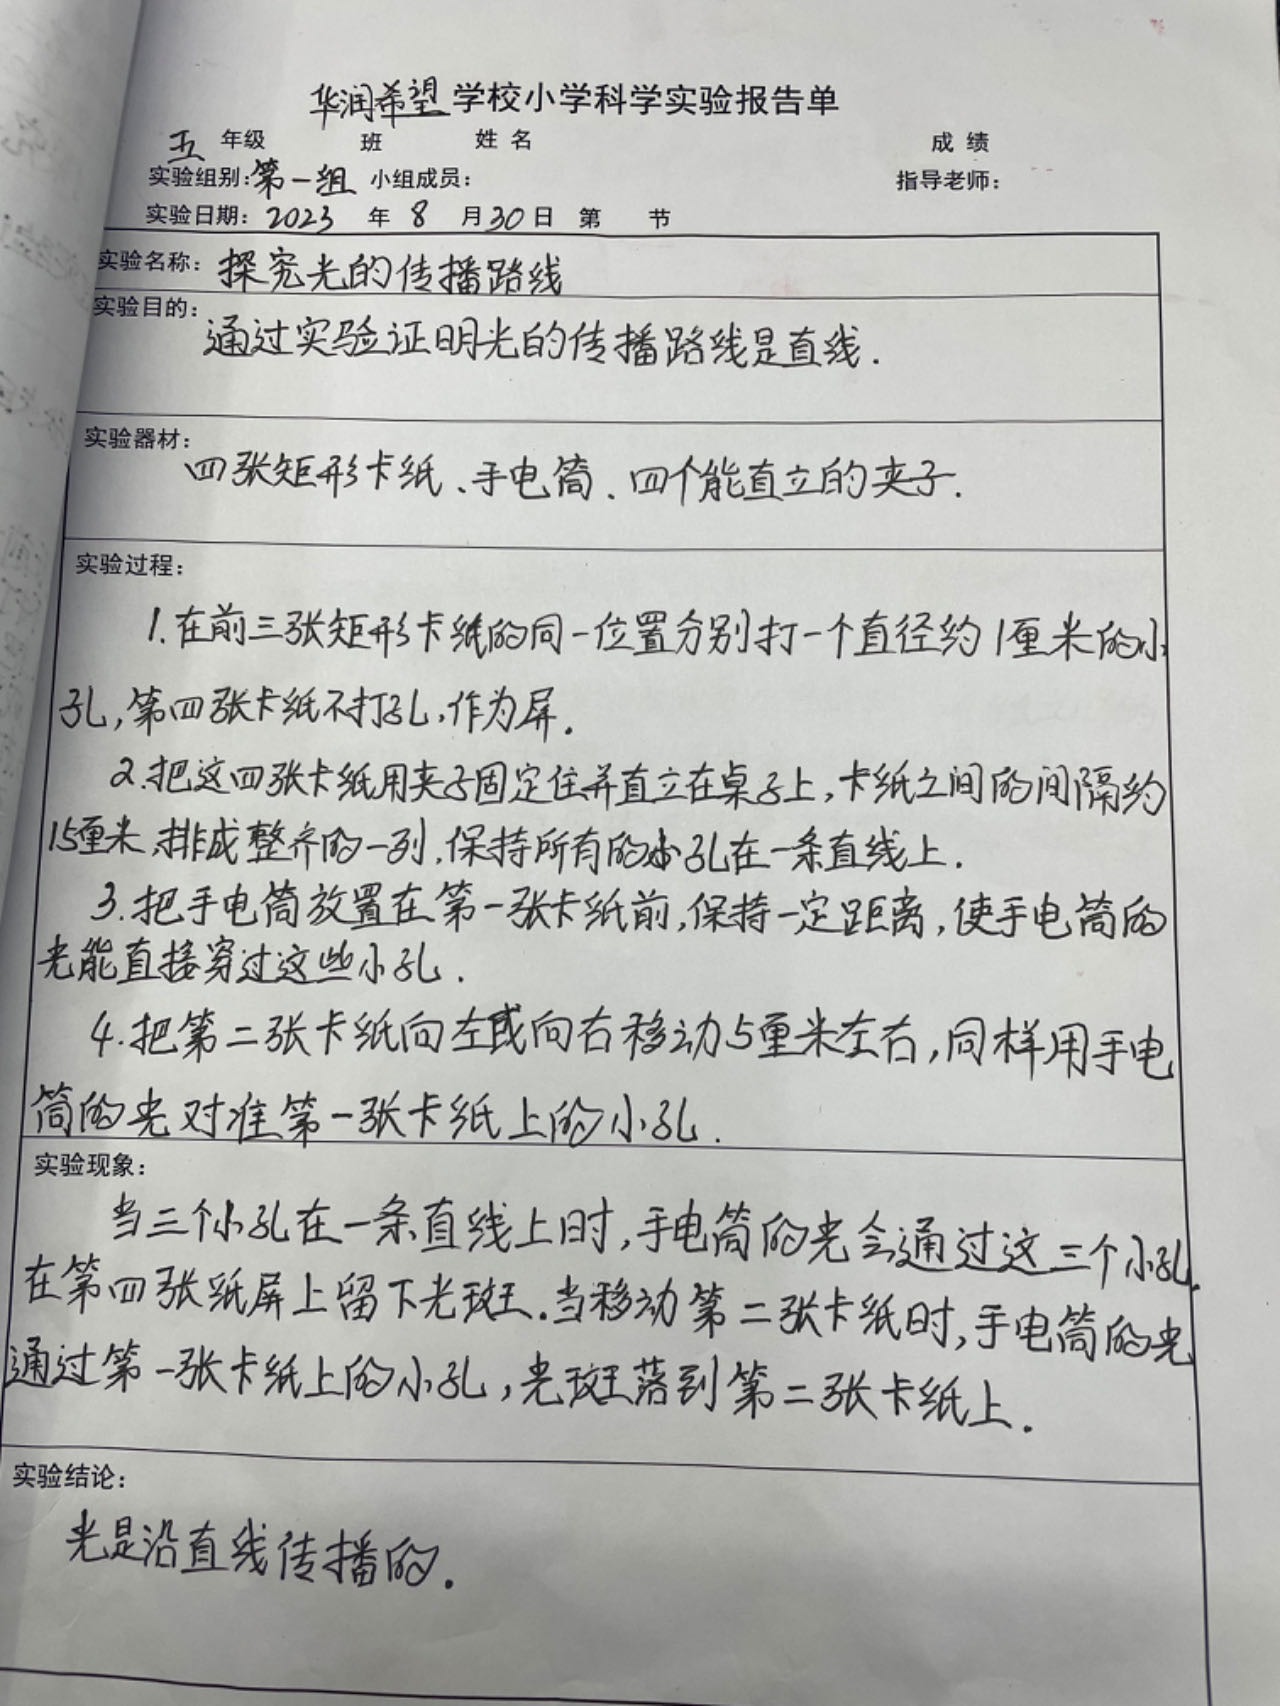 华润希望学校小学科学实验报告单
五 年级 班 姓名 成绩
实验组别:第一组 小组成员: 指导老师:
实验日期: 2023 年 8 月 30 日 第 节
实验名称: 探究光的传播路线
实验目的:
通过实验证明光的传播路线是直线.
实验器材:
四张矩形卡纸、手电筒、四个能直立的夹子.
实验过程:
1.在前三张矩形卡纸的同一位置分别打一个直径约1厘米的小
孔,第四张卡纸不打孔,作为屏.
2.把这四张卡纸用夹子固定住并直立在桌子上,卡纸之间的间隔约
15厘米,排成整齐的一列,保持所有的小孔在一条直线上.
3.把手电筒放置在第一张卡纸前,保持一定距离,使手电筒的
光能直接穿过这些小孔.
4.把第二张卡纸向左或向右移动5厘米左右,同样用手电
筒的光对准第一张卡纸上的小孔.
实验现象:
当三个小孔在一条直线上时,手电筒的光会通过这三个小孔,
在第四张纸屏上留下光斑.当移动第二张卡纸时,手电筒的光
通过第一张卡纸上的小孔,光斑落到第二张卡纸上.
实验结论:
光是沿直线传播的.